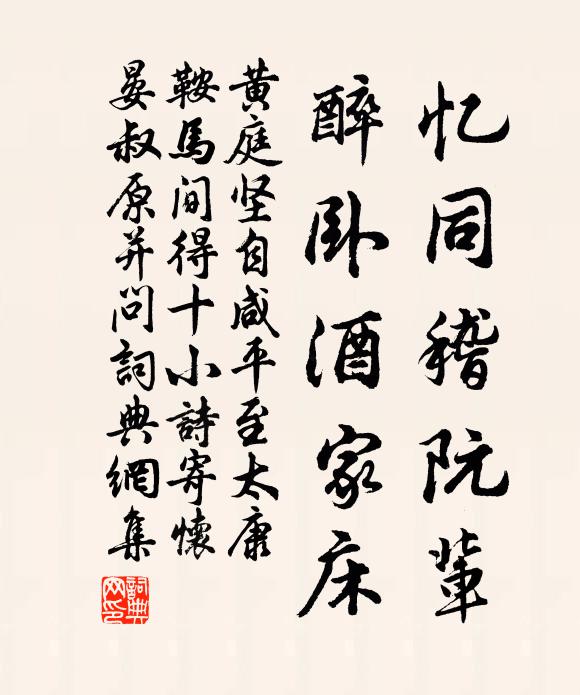 忆同嵇阮辈
醉卧酒家床
黄庭坚自咸平至太康
鞍馬间得十小詩寄懷
晏叔原并问詞典網集
詞典网印